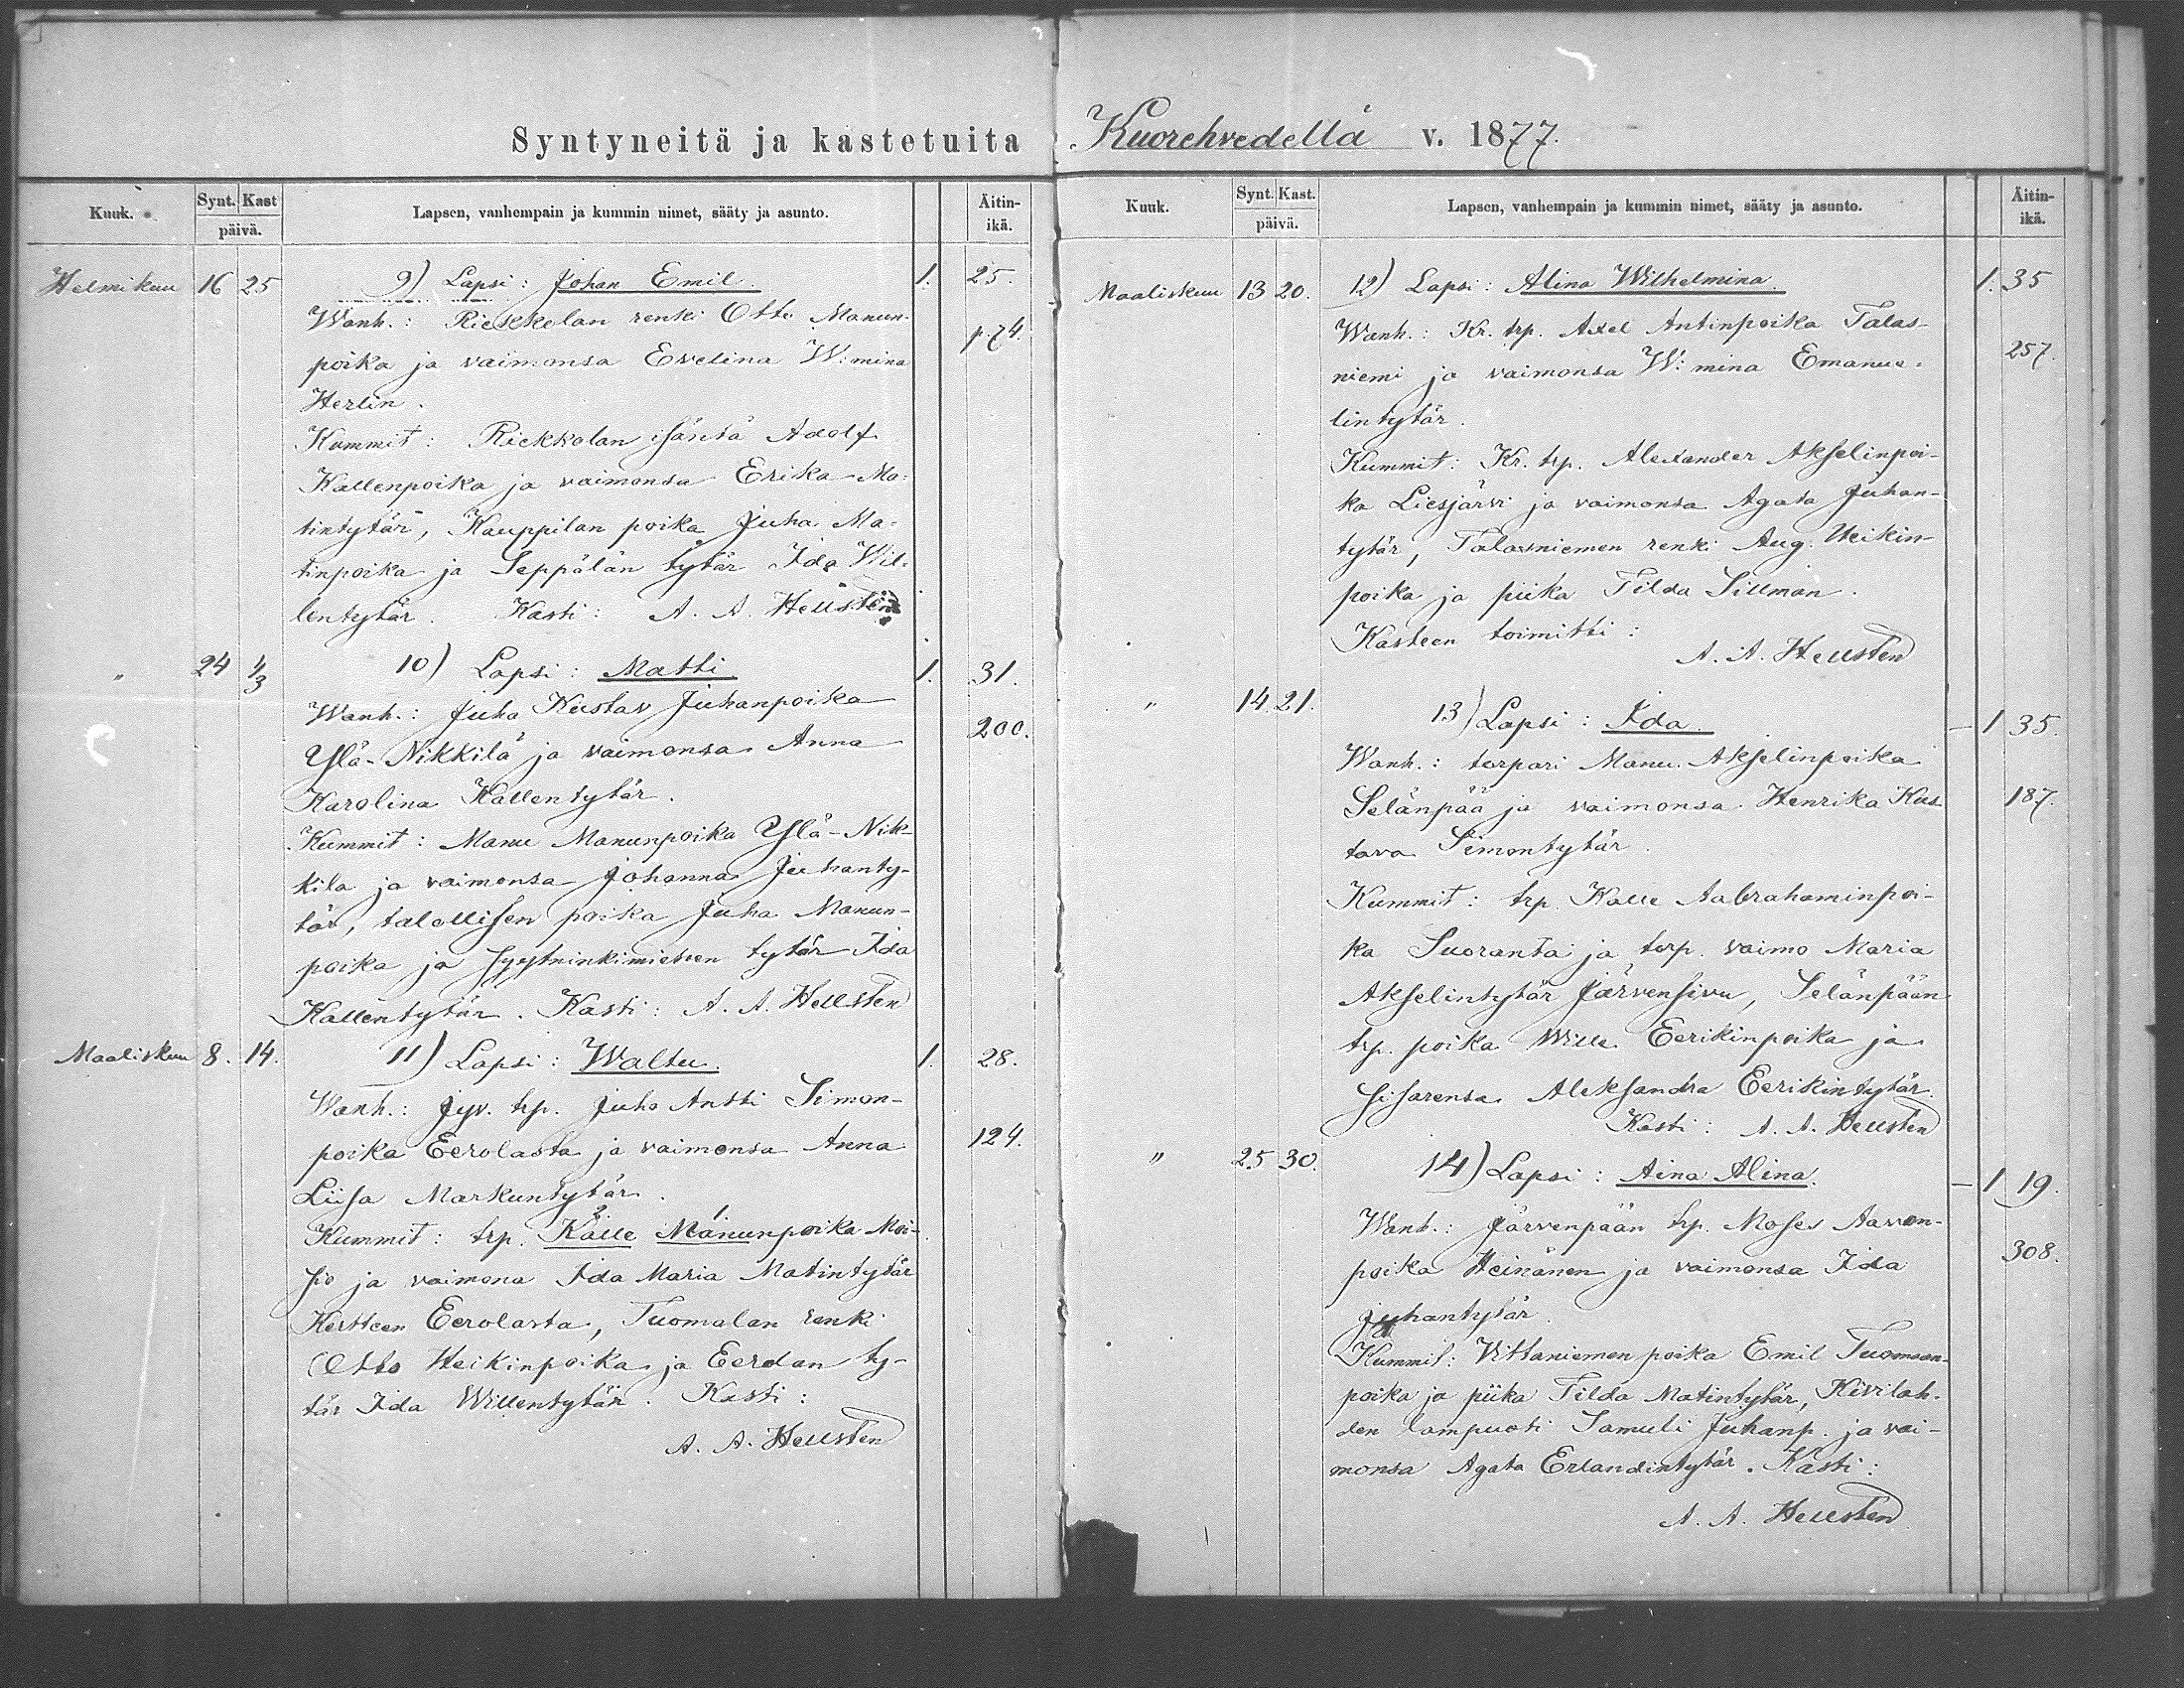 Syntyneitä ja kastetuita
Kuuk.
Synt.
Kast
päivä.
Lapsen, vanhempain ja kummin nimet, sääty ja asunto.
Äitin-
ikä.
Helmikuu 16 25 9) Lapsi: Johan Emil. 1. 25.
Wanh.: Riekkolan renki Otto Manun- p. 74.
poika ja vaimonsa Evelina W:mina
Herlin.
Kummit: Riekkolan isäntä Adolf
Kallenpoika ja vaimonsa Erika Ma-
tintytär, Kauppilan poika Juha Ma-
tinpoika ja Seppälän tytär Ida Wil-
lentytär. Kasti: A. A. Hellsten
" 24 4/3 10) Lapsi: Matti 1. 31.
Wanh.: Juha Kustav Juhanpoika
Ylä-Nikkilä ja vaimonsa Anna 200.
Karolina Kallentytär.
Kummit: Manu Manunpoika Ylä-Nik-
kilä ja vaimonsa Johanna Juhanty-
tär, talollisen poika Juha Manun-
poika ja tytär Ida
Kallentytär. Kasti: A. A. Hellsten
Maaliskuu 8. 14. 11) Lapsi: Waltu. 1. 28.
Wanh.: Jyv. trp. Juho Antti Simon-
poika Eerolasta ja vaimonsa Anna 124.
Liisa Markuntytär.
Kummit: trp. 2 Kalle 1 Manunpoika Moi-
sio ja vaimona Ida Maria Matintytär
Eerolasta, Tuomalan renki
Otto Heikinpoika ja Eerolan ty-
tär Ida Willentytär. Kasti:
A. A. Hellsten
Kuorehvedellä v. 1877.
Kuuk.
Synt.
Kast.
päivä.
Lapsen, vanhempain ja kummin nimet, sääty ja asunto.
Äitin-
ikä.
Maaliskuu 13 20. 12) Lapsi: Alina Wilhelmina. 1. 35
Wanh.: Kr. trp. Axel Antinpoika Talas-
niemi ja vaimonsa W:mina Emanue- 257.
lintytär.
Kummit: Kr. trp. Alexander Akselinpoi-
ka Liesjärvi ja vaimonsa Agata Juhan-
tytär, Talasniemen renki Aug. Heikin-
poika ja piika Tilda Sillman.
Kasteen toimitti:
A. A. Hellsten
" 14. 21. 13) Lapsi: Ida. – 1 35.
Wanh.: torpari Manu Akselinpoika
Selänpää ja vaimonsa Henrika Kus- 187.
tava Simontytär.
Kummit: trp. Kalle Aabrahaminpoi-
ka Suoranta ja torp. vaimo Maria
Akselintytär Järvensivu, Selänpään
trp. poika Wille Eerikinpoika ja
sisarensa Aleksandra Eerikintytär.
Kasti: A. A. Hellsten
" 25 30. 14) Lapsi: Aina Alina. – 1 19.
Wanh.: Järvenpään trp. Moses Aaron-
poika Heinänen ja vaimonsa Ida 308.
Juhantytär.
Kummit: Vittaniemen poika Emil Tuomaan-
poika ja piika Tilda Matintytär, Kivilah-
den lampuoti Samuli Juhanp. ja vai-
monsa Agata Erlandintytär. Kasti:
A. A. Hellsten